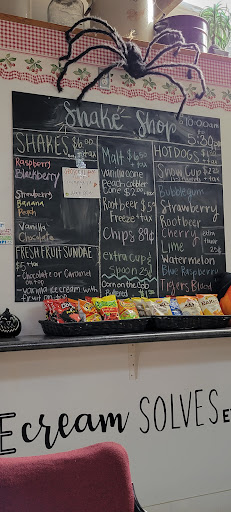 Shake Shop
SHAKES $6.00
+tax
Raspberry
Blackberry
Strawberry
Banana
Peach
Vanilla
Chocolate
FRESH FRUIT SUNDAE
$5 + tax
Chocolate or Caramel
on top
Vanilla ice cream with
fruit on
Malt $6.50
+tax
Vanilla cone
Peach cobbler
Cone
Root beer $5
Freeze +tax
Chips 89¢
extra Cup &
Spoon 25¢
Corn on the Cob
Buttered
HOTDOGS
+tax
Snow Cup
Bubblegum
Strawberry
Rootbeer
Cherry
Lime
extra
flavor
25¢
Watermelon
Blue Raspberry
Tigers Blood
cream SOLVES